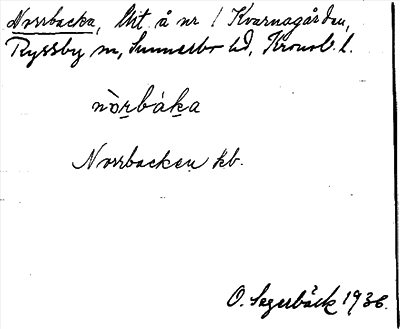 Norrbacka, lht. å nr 1 Kvarnagården,
Ryssby sn, Sunnerbo hd, Kronob. l.
nò̀rbàka
Norrbacken kb.
O. Segerbäck 1936.